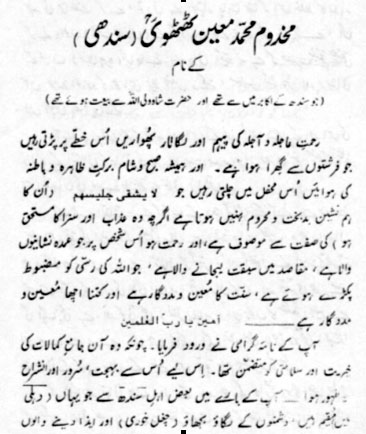 مخدوم محمد معین ٹھٹھوی (سندھی)
کے نام
(جو سندھ کے اکابر میں سے تھے اور حضرت شاہ ولی اللہ سے بیعت ہوئے تھے)
رحمتِ عاجلہ و آجلہ کی پیہم اور لگاتار پھواریں اُس خطے پر پڑتی ہیں
جو فرشتوں سے گھرا ہوا ہے۔ اور ہمیشہ صبح و شام برکتِ ظاہرہ و باطنہ
کی ہوائیں اُس محفل میں چلتی رہیں جو لا یشقی جلیسهم (اُن کا
ہم نشین بدبخت و محروم نہیں ہوتا ہے اگرچہ وہ عذاب اور سزا کا مستحق
ہو) کی صفت سے موصوف ہے، اور رحمت ہو اُس شخص پر جو عمدہ نشانیوں
والا ہے، مقاصد میں سبقت لیجانے والا ہے، جو اللہ کی رسی کو مضبوط
پکڑے ہوئے ہے، سنت کا معین و مددگار ہے اور کتنا اچھا معین و
مددگار ہے ــــ امین یا رب العلمین
آپ کے نامۂ گرامی نے ورود فرمایا۔ چونکہ وہ آن جامعِ کمالات کی
خیریت اور سلامتی کو متضمن تھا۔ اِس لیے اُس سے بہجت، سُرور اور انشراح
ظہور ہوا ــــ آپ کے بارے میں بعض اہلِ سندھ سے جو یہاں (دہلی
میں) مقیم ہیں، دشمنوں کے لگاؤ بجھاؤ (چغل خوری) اور ایذا دینے والوں